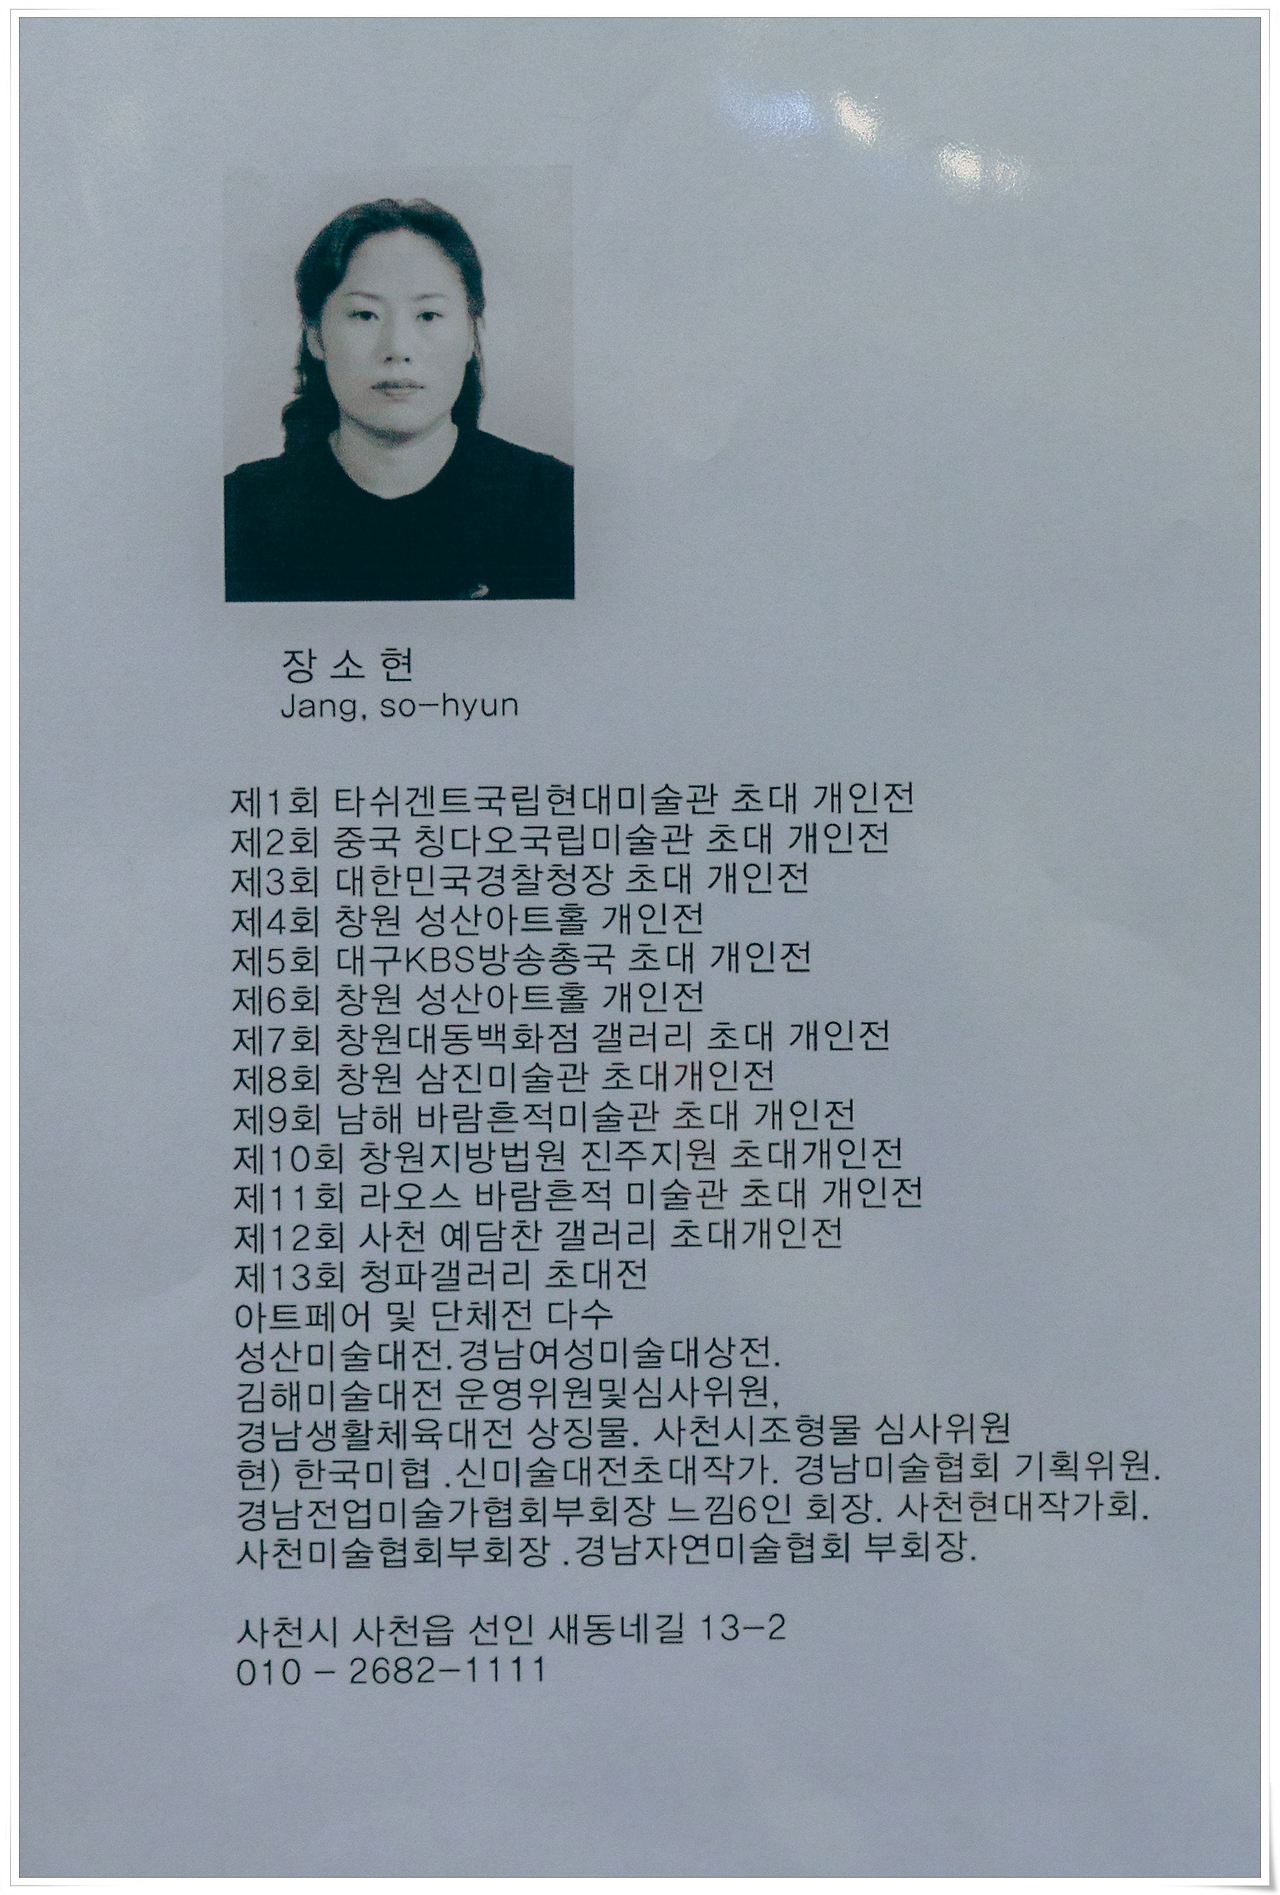 장 소 현
Jang, so-hyun
제1회 타쉬겐트국립현대미술관 초대 개인전
제2회 중국 칭다오국립미술관 초대 개인전
제3회 대한민국경찰청장 초대 개인전
제4회 창원 성산아트홀 개인전
제5회 대구KBS방송총국 초대 개인전
제6회 창원 성산아트홀 개인전
제7회 창원대동백화점 갤러리 초대 개인전
제8회 창원 삼진미술관 초대개인전
제9회 남해 바람흔적미술관 초대 개인전
제10회 창원지방법원 진주지원 초대개인전
제11회 라오스 바람흔적 미술관 초대 개인전
제12회 사천 예담찬 갤러리 초대개인전
제13회 청파갤러리 초대전
아트페어 및 단체전 다수
성산미술대전.경남여성미술대상전.
김해미술대전 운영위원및심사위원,
경남생활체육대전 상징물. 사천시조형물 심사위원
현) 한국미협 .신미술대전초대작가. 경남미술협회 기획위원.
경남전업미술가협회부회장 느낌6인 회장. 사천현대작가회.
사천미술협회부회장 .경남자연미술협회 부회장.
사천시 사천읍 선인 새동네길 13-2
010 - 2682-1111